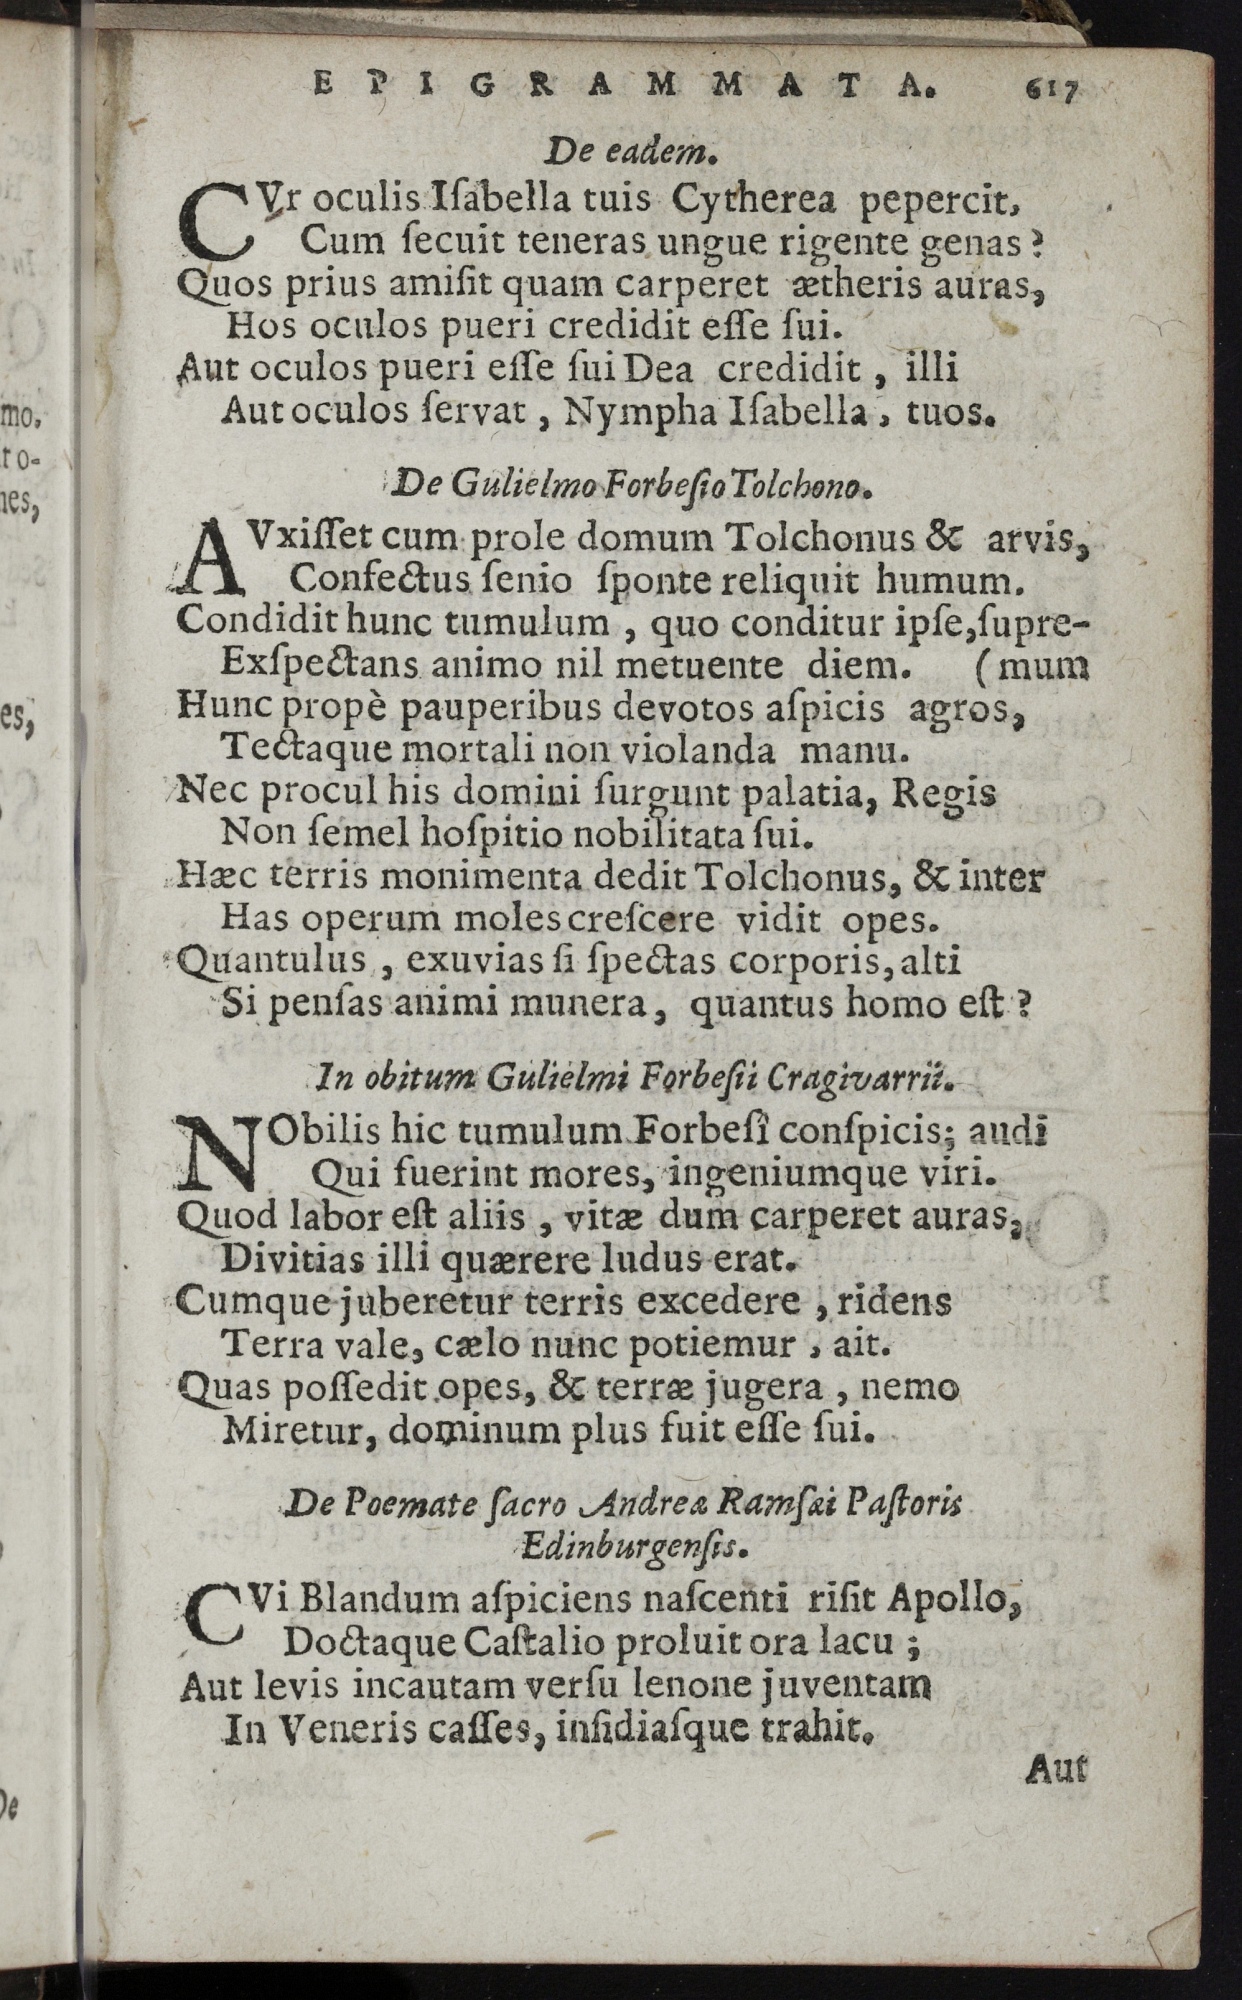 EPIGRAMMATA. 617
De eadem.
CVr oculis Iſabella tuis Cytherea pepercit,
Cum ſecuit teneras ungue rigente genas?
Quos prius amiſit quam carperet ætheris auras,
Hos oculos pueri credidit eſſe ſui.
Aut oculos pueri eſſe ſui Dea credidit, illi
Aut oculos ſervat, Nympha Iſabella, tuos.
De Gulielmo Forbeſio Tolchono.
AVxiſſet cum prole domum Tolchonus & arvis,
Confectus ſenio ſponte reliquit humum.
Condidit hunc tumulum, quo conditur ipſe, ſupre-
Exſpectans animo nil metuente diem. (mum
Hunc propè pauperibus devotos aſpicis agros,
Tectaque mortali non violanda manu.
Nec procul his domini ſurgunt palatia, Regis
Non ſemel hoſpitio nobilitata ſui.
Hæc terris monimenta dedit Tolchonus, & inter
Has operum moles creſcere vidit opes.
Quantulus, exuvias ſi ſpectas corporis, alti
Si penſas animi munera, quantus homo eſt?
In obitum Gulielmi Forbeſii Cragivarrii.
NObilis hic tumulum Forbeſî conſpicis; audi
Qui fuerint mores, ingeniumque viri.
Quod labor eſt aliis, vitæ dum carperet auras,
Divitias illi quærere ludus erat.
Cumque juberetur terris excedere, ridens
Terra vale, cælo nunc potiemur, ait.
Quas poſſedit opes, & terræ jugera, nemo
Miretur, dominum plus fuit eſſe ſui.
De Poemate ſacro Andreæ Ramſæi Paſtoris
Edinburgenſis.
CVi Blandum aſpiciens naſcenti riſit Apollo,
Doctaque Caſtalio proluit ora lacu;
Aut levis incautam verſu lenone juventam
In Veneris caſſes, inſidiaſque trahit.
Aut